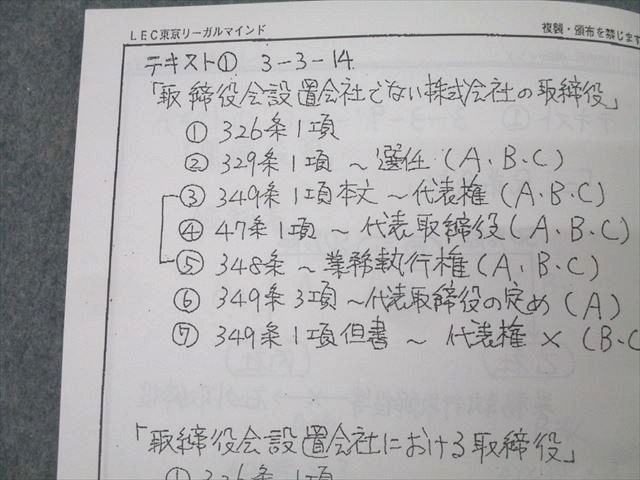 LEC東京リーガルマインド
複製・頒布を禁じます
テキスト① 3-3-14
「取締役会設置会社でない株式会社の取締役」
① 326条1項
② 329条1項 ~ 選任(A、B、C)
③ 349条1項本文 ~ 代表権(A、B、C)
④ 47条1項 ~ 代表取締役(A、B、C)
⑤ 348条 ~ 業務執行権(A、B、C)
⑥ 349条3項 ~ 代表取締役の定め(A)
⑦ 349条1項但書 ~ 代表権 × (B、C
「取締役会設置会社における取締役」
① 326条1項